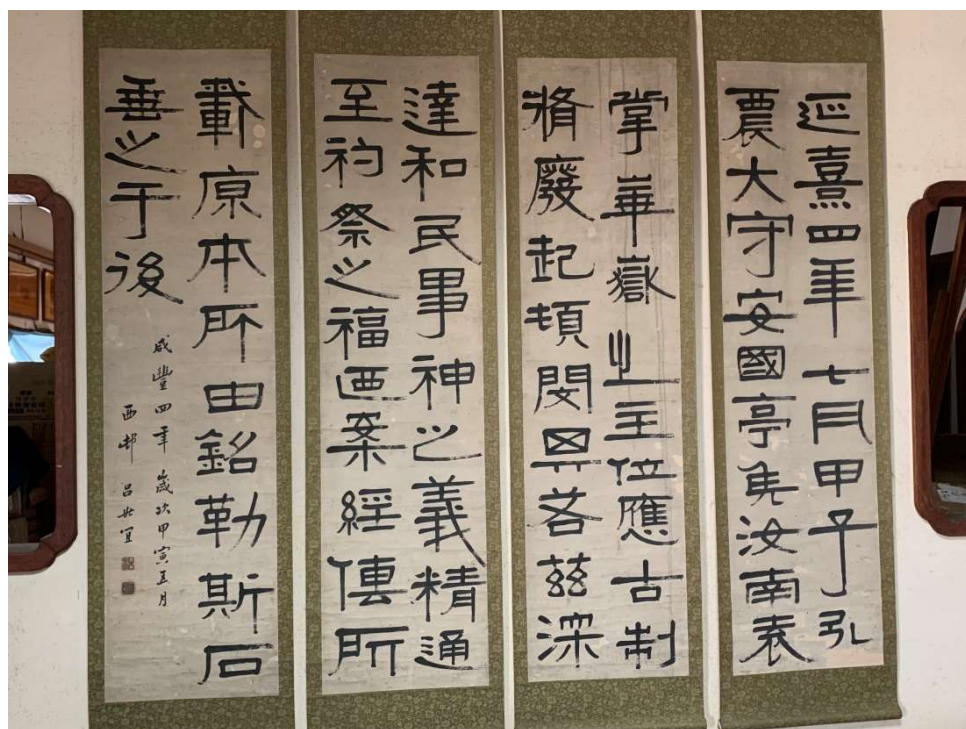 延熹四年七月甲子弘
農大守安國亭侯汝南袁
掌華嶽之主位應古制
脩廢起頓閔其若茲深
達和民事神之義精通
至礿祭之福迺案經傳所
載原本所由銘勒斯石
垂之于後
咸豐四年歲次甲寅五月
西邨 呂世宜